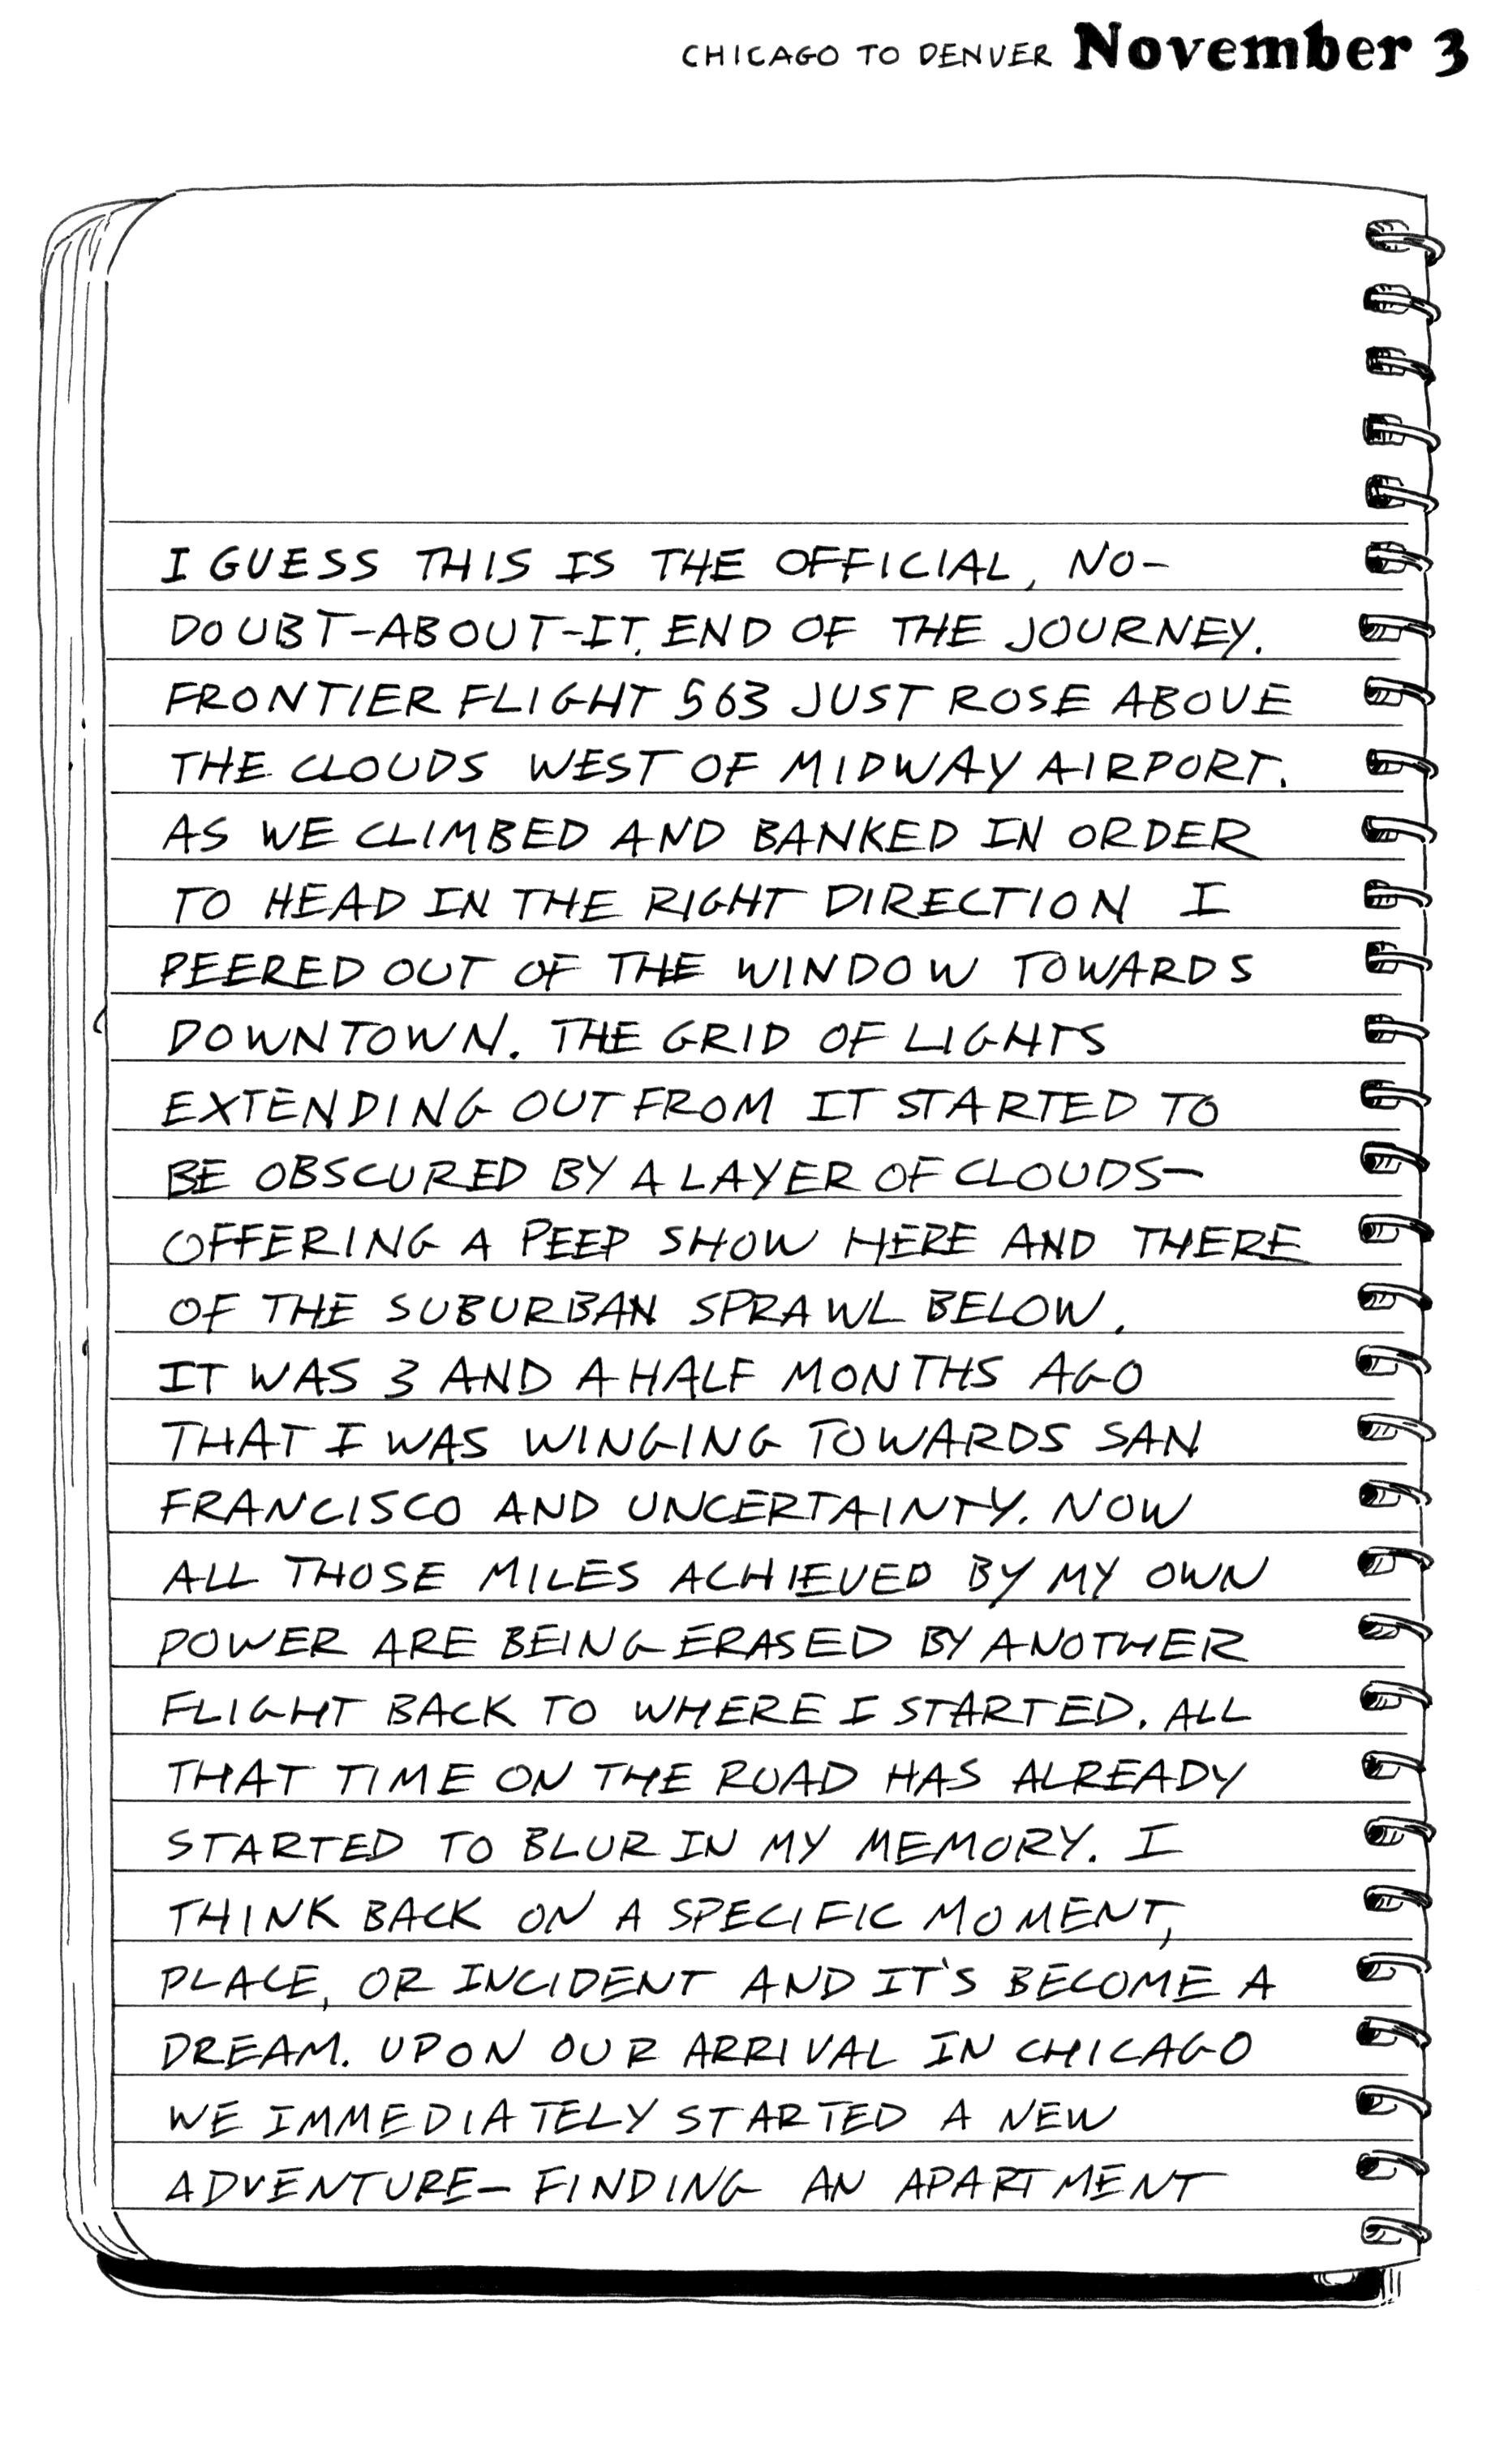 CHICAGO TO DENVER November 3
I GUESS THIS IS THE OFFICIAL, NO-
DOUBT-ABOUT-IT, END OF THE JOURNEY.
FRONTIER FLIGHT 563 JUST ROSE ABOVE
THE CLOUDS WEST OF MIDWAY AIRPORT.
AS WE CLIMBED AND BANKED IN ORDER
TO HEAD IN THE RIGHT DIRECTION I
PEERED OUT OF THE WINDOW TOWARDS
DOWNTOWN. THE GRID OF LIGHTS
EXTENDING OUT FROM IT STARTED TO
BE OBSCURED BY A LAYER OF CLOUDS—
OFFERING A PEEP SHOW HERE AND THERE
OF THE SUBURBAN SPRAWL BELOW.
IT WAS 3 AND A HALF MONTHS AGO
THAT I WAS WINGING TOWARDS SAN
FRANCISCO AND UNCERTAINTY. NOW
ALL THOSE MILES ACHIEVED BY MY OWN
POWER ARE BEING ERASED BY ANOTHER
FLIGHT BACK TO WHERE I STARTED. ALL
THAT TIME ON THE ROAD HAS ALREADY
STARTED TO BLUR IN MY MEMORY. I
THINK BACK ON A SPECIFIC MOMENT,
PLACE, OR INCIDENT AND IT'S BECOME A
DREAM. UPON OUR ARRIVAL IN CHICAGO
WE IMMEDIATELY STARTED A NEW
ADVENTURE— FINDING AN APARTMENT